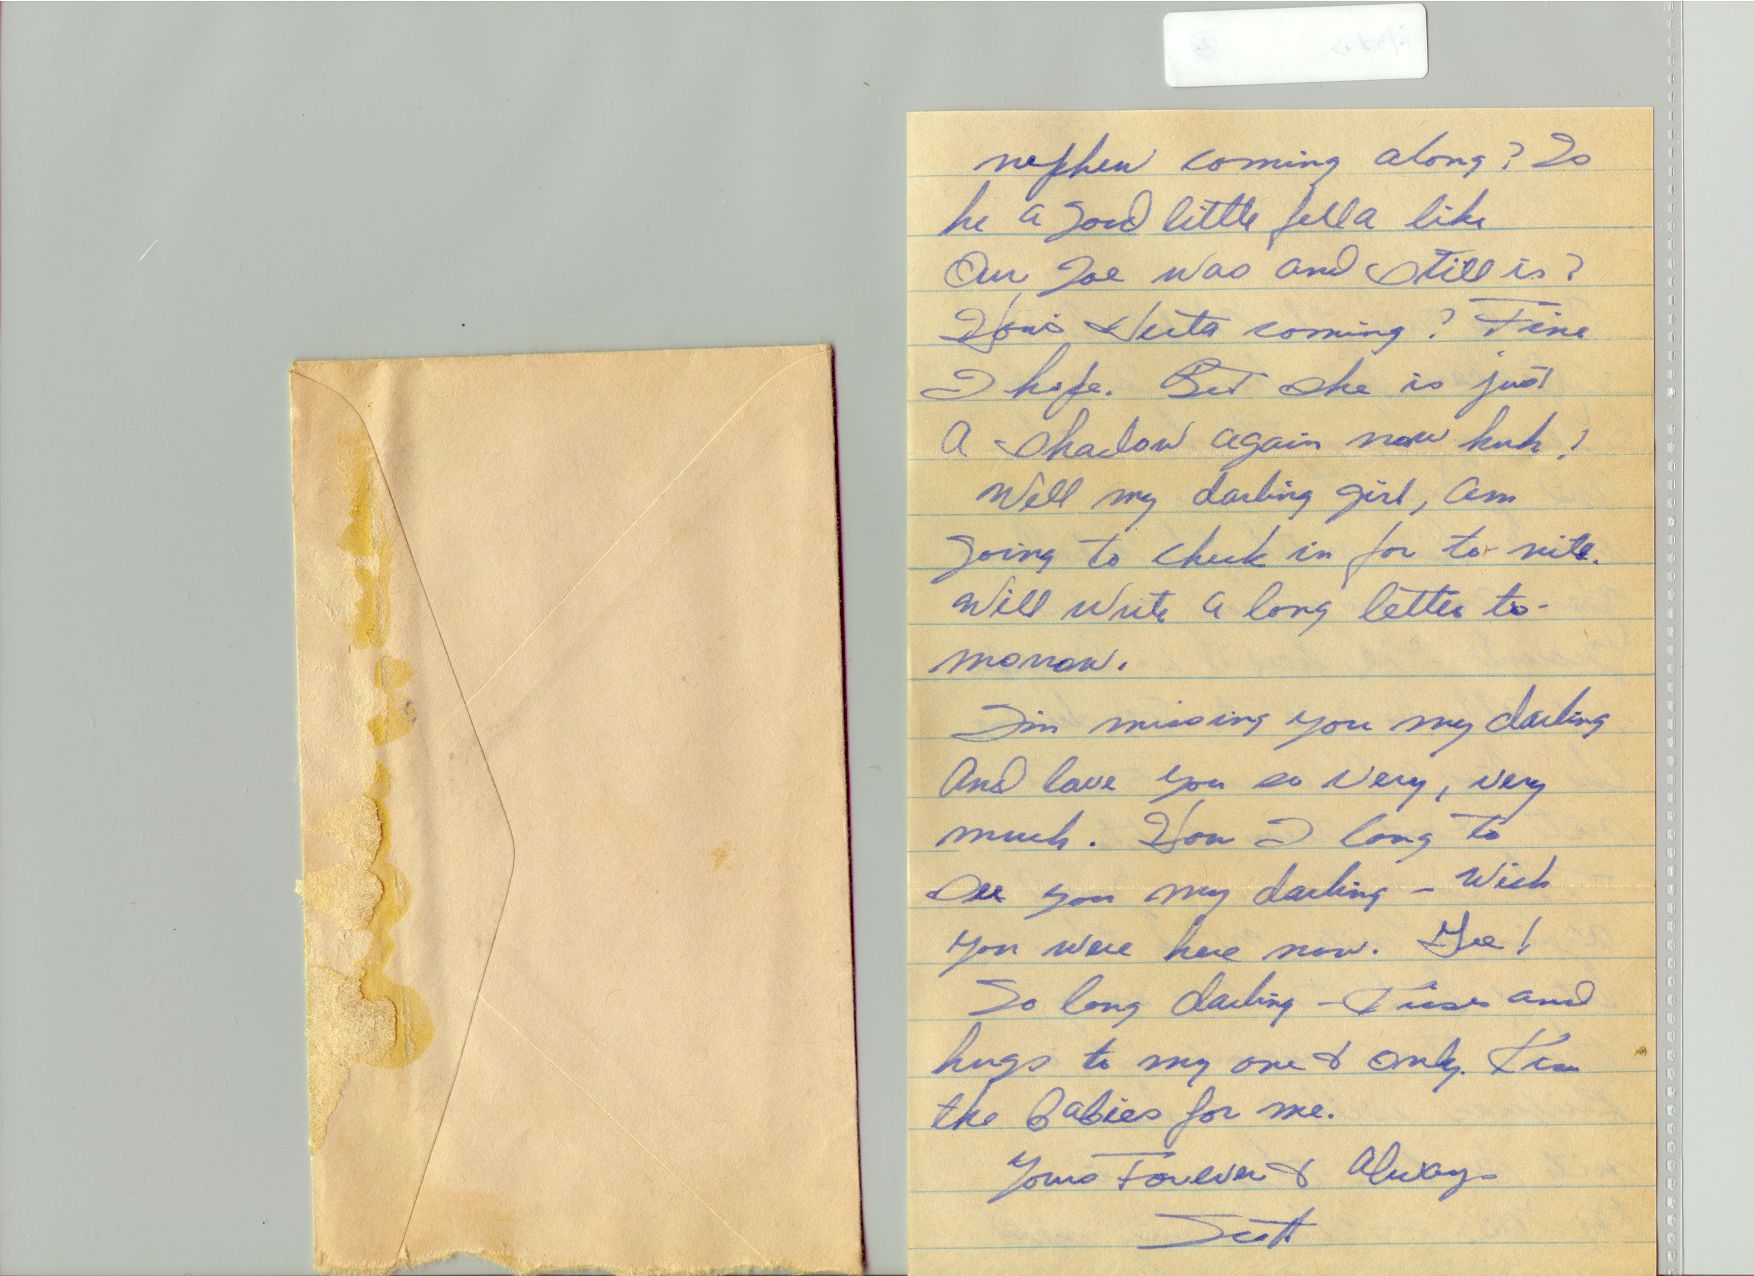 nephew coming along? Is
he a good little fella like
Our Joe was and still is?
How's coming? Fine
I hope. Bet she is just
a shadow again now huh?
Well my darling girl, am
going to check in for to-nite.
Will write a long letter to-
morrow.
I'm missing you my darling
and love you so very, very
much. How I long to
see you my darling - Wish
you were here now. Gee!
So long darling - Kisses and
hugs to my one & only. Kiss
the babies for me.
Yours Forever & Always
Scott